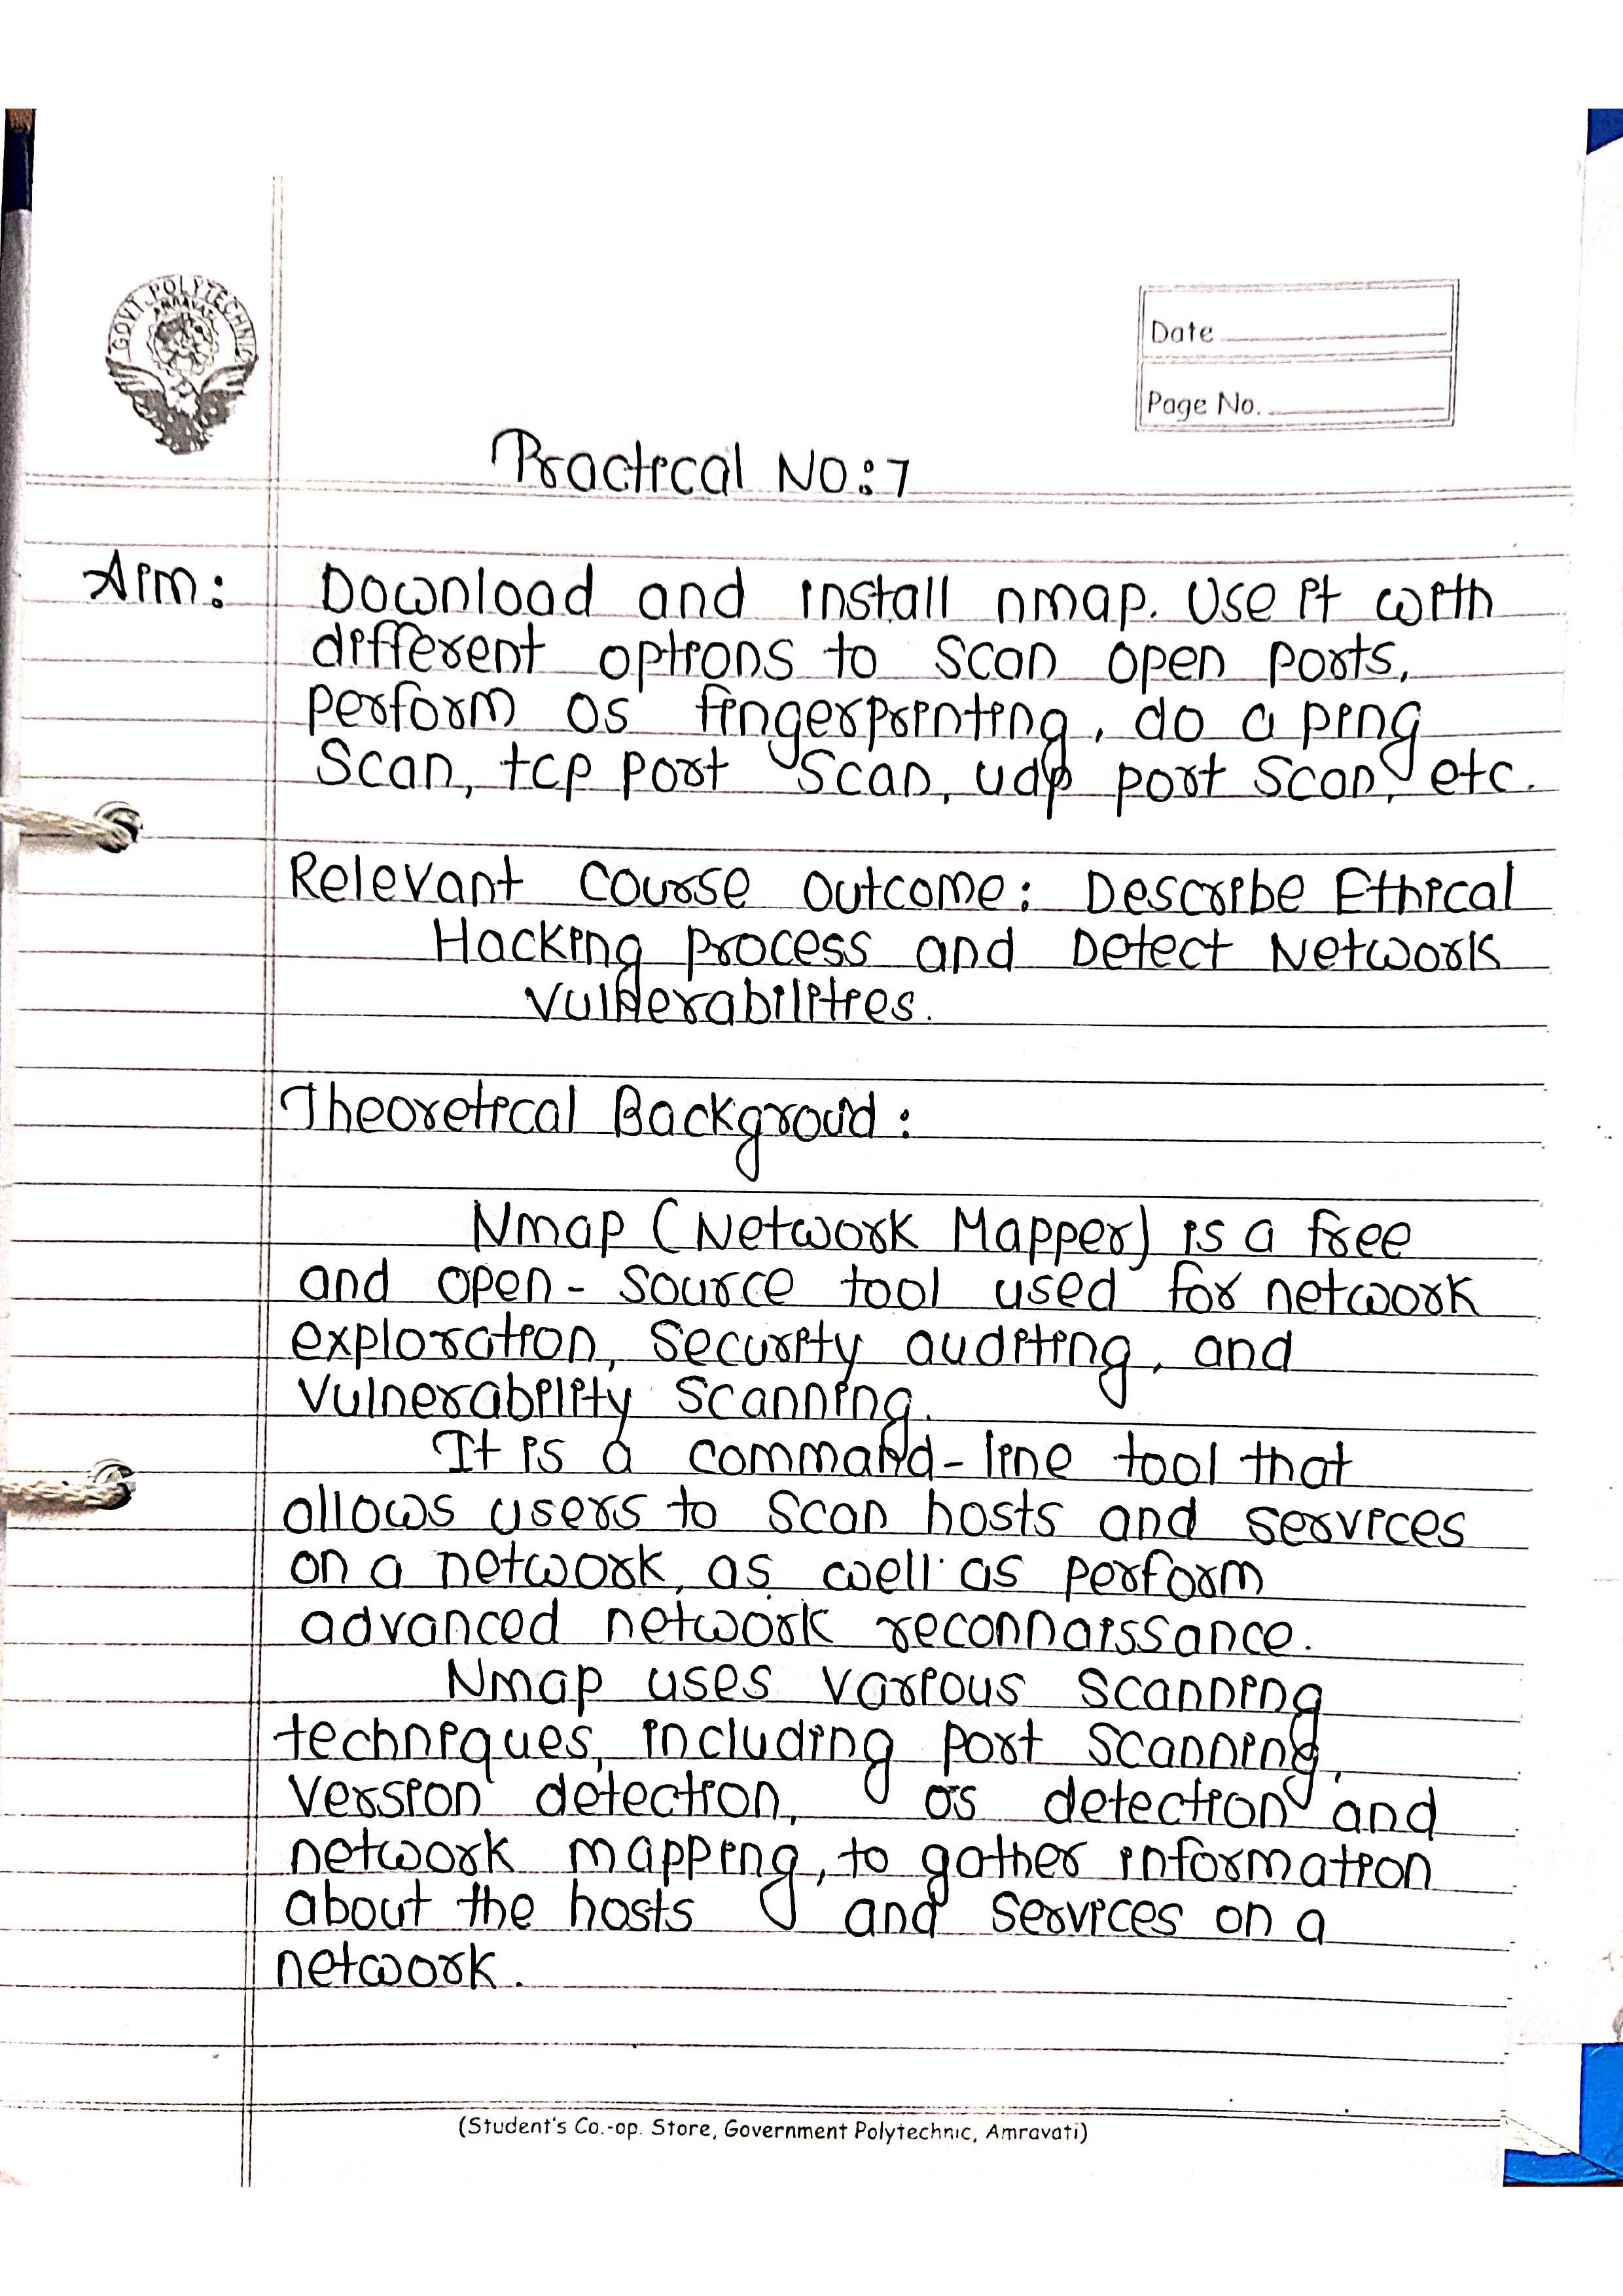 GOVT. POLYTECHNIC
AMRAVATI
Date
Page No.
Practical NO:7
Aim: Download and install nmap. Use it with
different options to scan open ports,
perform os fingerprinting, do a ping
Scan, tcp port Scan, udp port Scan, etc.
Relevant Course Outcome: Describe Ethical
Hacking process and Detect Network
Vulnerabilities.
Theoretical Backgroud:
Nmap (Network Mapper) is a free
and open-source tool used for network
exploration, security auditing, and
Vulnerability scanning.
It is a command-line tool that
allows users to scan hosts and services
on a network, as well as perform
advanced network reconnaissance.
Nmap uses various scanning
techniques, including port scanning,
version detection, os detection and
network mapping, to gather information
about the hosts and services on a
network.
(Student's Co.-op. Store, Government Polytechnic, Amravati)